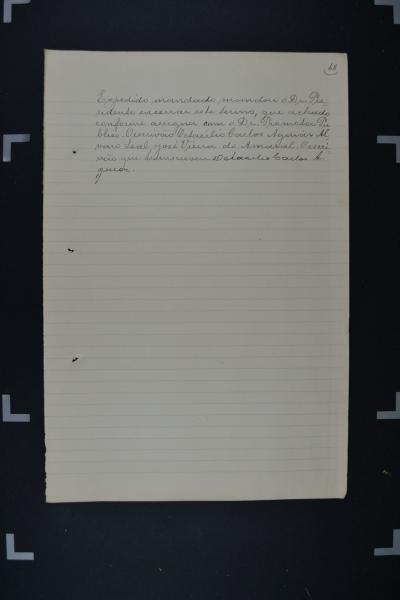 68
Expedido mandado, mandou o Dr. Pre-
sidente encerrar este termo, que achado
conforme assigna com o Dr. Promotor Pu-
blico. Escrivão Octacilio Carlos Aguiar Al-
varo Leal, José Vieira do Amaral. Escri-
vão que subscreveu Octacilio Carlos A-
guiar.